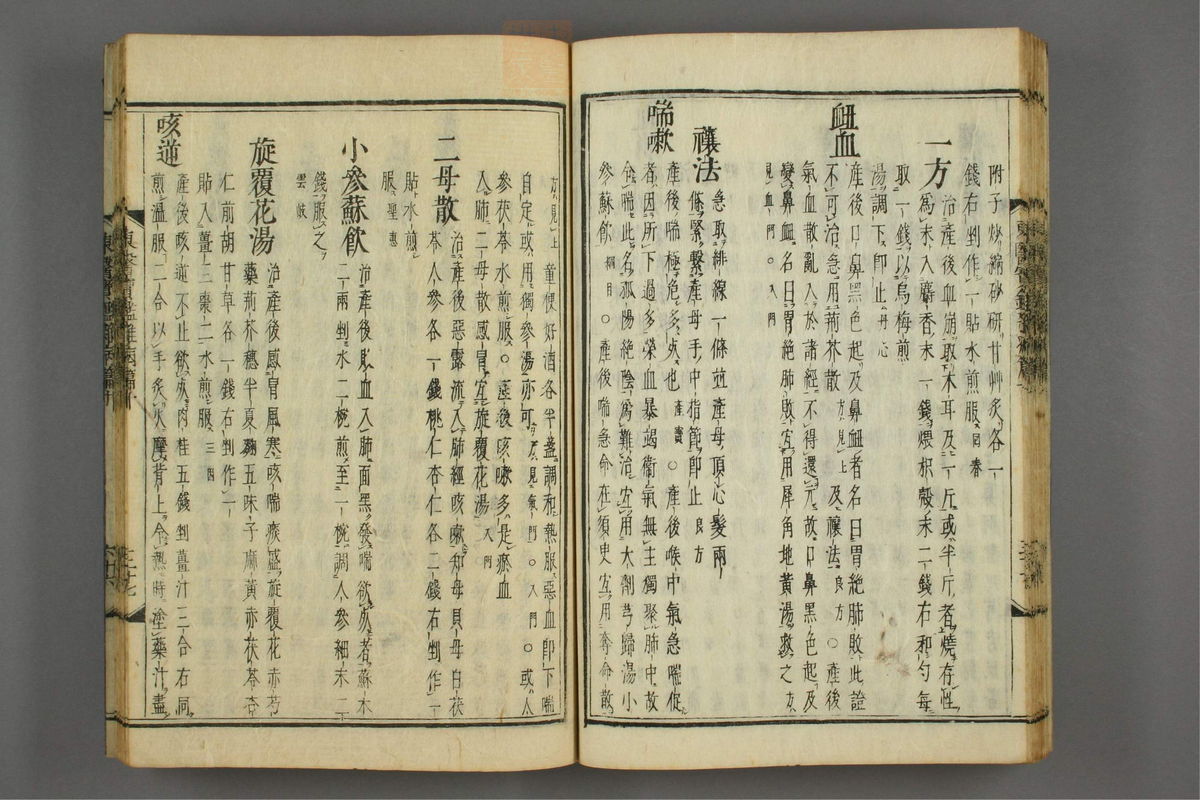 附子炒縮砂研甘艸炙各一
錢右剉作一貼水煎服回春
一方治産後血崩取木耳及一斤或半斤者燒存性
爲末入麝香末一錢煨枳殼末二錢右和勻每
取一錢以烏梅煎
湯調下卽止丹心
衄血産後口鼻黑色起及鼻衄者名曰胃絶肺敗此證
不可治急用荊芥散方見上及禳法良方○産後
氣血散亂入於諸經不得還元故口鼻黑色起及
變鼻衄名曰胃絶肺敗宜用犀角地黃湯救之方
見血門○入門
禳法急取緋線一條並産母頂心髮兩
條緊繫産母手中指節卽止良方
喘嗽産後喘極危多死也産寶○産後喉中氣急喘促
者因所下過多榮血暴竭衛氣無主獨聚肺中故
令喘此名孤陽絶陰爲難治宜用大劑芎歸湯小
參蘇飮綱目○産後喘急命在須臾宜用奪命散
方見上童便好酒各半盞調和熱服惡血卽下喘
自定或用獨參湯亦可方見氣門○入門○或人
參茯苓水煎服○産後咳嗽多是瘀血
入肺二母散感冒宜旋覆花湯入門
二母散治産後惡露流入肺經咳嗽知母貝母白茯
苓人參各一錢桃仁杏仁各二錢右剉作一
貼水煎
服聖惠
小參蘇飮治産後敗血入肺面黑發喘欲死者蘇木
二兩剉水二椀煎至一椀調人參細末二
錢服之
雲岐
旋覆花湯治産後感冒風寒咳喘痰盛旋覆花赤芍
藥荊芥穗半夏麴五味子麻黃赤茯苓杏
仁前胡甘草各一錢右剉作一
貼入薑三棗二水煎服三因
咳逆産後咳逆不止欲死肉桂五錢剉薑汁三合右同
煎溫服二合以手炙火摩背上令熱時塗藥汁盡